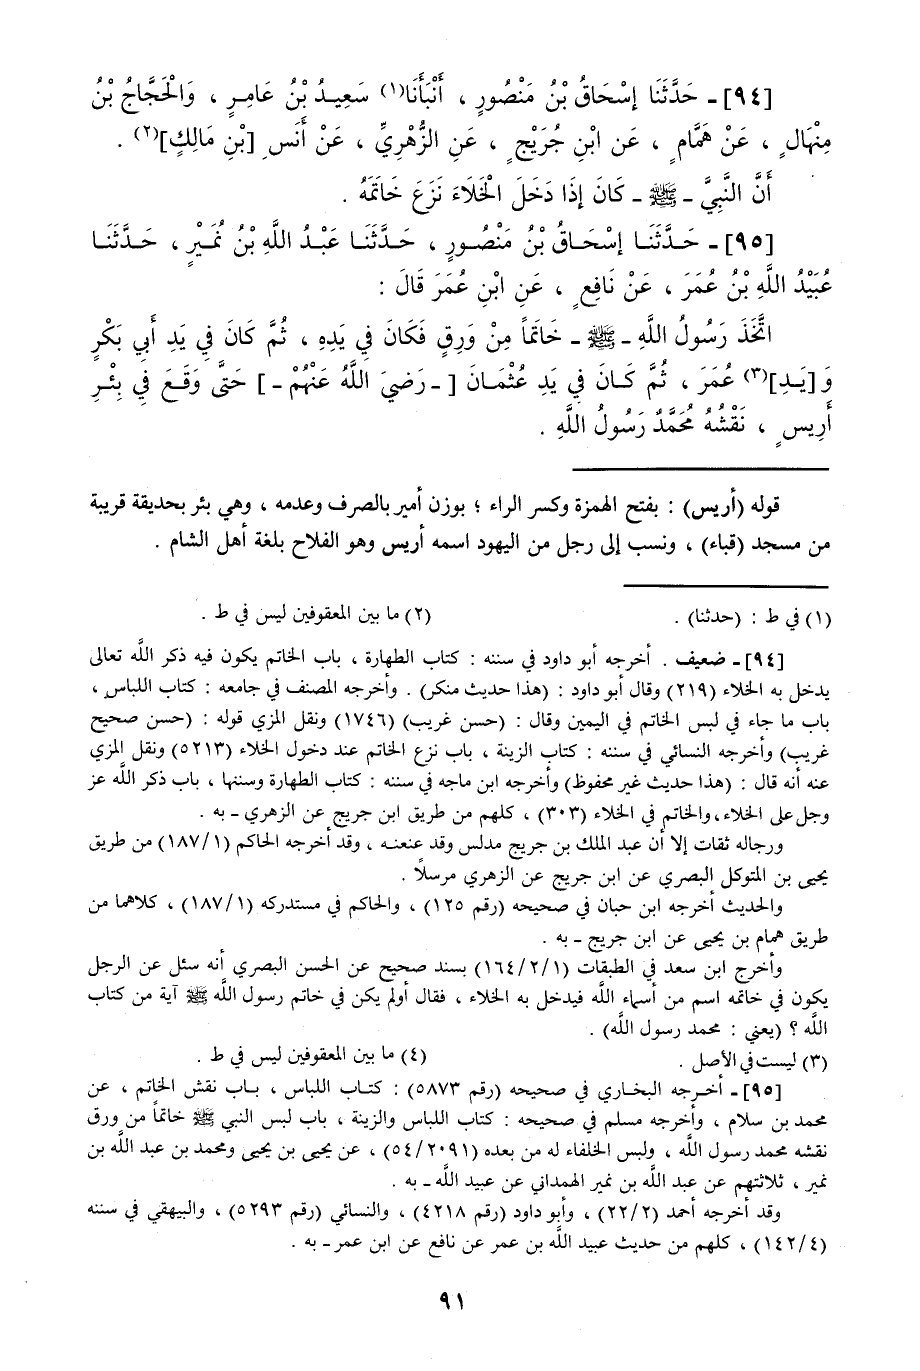 [٩٤] ـ حَدَّثَنَا إِسْحَاقُ بْنُ مَنْصُورٍ ، أَنْبَأَنَا(١) سَعِيدُ بْنُ عَامِرٍ ، وَالْحَجَّاجُ بْنُ
مِنْهَالٍ ، عَنْ هَمَّامٍ ، عَن ابْنِ جُرَيْجٍ ، عَنِ الزُّهْرِيِّ ، عَنْ أَنَسِ [بْنِ مَالِكٍ](٢) .
أَنَّ النَّبِيَّ ـ ﷺ ـ كَانَ إِذَا دَخَلَ الْخَلَاءَ نَزَعَ خَاتَمَهُ .
[٩٥] ـ حَدَّثَنَا إِسْحَاقُ بْنُ مَنْصُورٍ ، حَدَّثَنَا عَبْدُ اللَّهِ بْنُ نُمَيْرٍ ، حَدَّثَنَا
عُبَيْدُ اللَّهِ بْنُ عُمَرَ ، عَنْ نَافِعٍ ، عَنِ ابْنِ عُمَرَ قَالَ :
اتَّخَذَ رَسُولُ اللَّهِ ـ ﷺ ـ خَاتَماً مِنْ وَرِقٍ فَكَانَ فِي يَدِهِ ، ثُمَّ كَانَ فِي يَدِ أَبِي بَكْرٍ
وَ[يَدِ](٣) عُمَرَ ، ثُمَّ كَانَ فِي يَدِ عُثْمَانَ [ ـ رَضِيَ اللَّهُ عَنْهُمْ ـ ] حَتَّى وَقَعَ فِي بِئْرِ
أَرِيسٍ ، نَقْشُهُ مُحَمَّدٌ رَسُولُ اللَّهِ .
قوله (أريس) : بفتح الهمزة وكسر الراء ؛ بوزن أمير بالصرف وعدمه ، وهي بئر بحديقة قريبة
من مسجد (قباء) ، ونسب إلى رجل من اليهود اسمه أريس وهو الفلاح بلغة أهل الشام .
(١) في ط : (حدثنا) . (٢) ما بين المعقوفين ليس في ط .
[٩٤] ـ ضعيف . أخرجه أبو داود في سننه : كتاب الطهارة ، باب الخاتم يكون فيه ذكر اللَّه تعالى
يدخل به الخلاء (٢١٩) وقال أبو داود : (هذا حديث منكر) . وأخرجه المصنف في جامعه : كتاب اللباس ،
باب ما جاء في لبس الخاتم في اليمين وقال : (حسن غريب) (١٧٤٦) ونقل المزي قوله : (حسن صحيح
غريب) وأخرجه النسائي في سننه : كتاب الزينة ، باب نزع الخاتم عند دخول الخلاء (٥٢١٣) ونقل المزي
عنه أنه قال : (هذا حديث غير محفوظ) وأخرجه ابن ماجه في سننه : كتاب الطهارة وسننها ، باب ذكر اللَّه عز
وجل على الخلاء، والخاتم في الخلاء (٣٠٣) ، كلهم من طريق ابن جريج عن الزهري ـ به .
ورجاله ثقات إلا أن عبد الملك بن جريج مدلس وقد عنعنه ، وقد أخرجه الحاكم (١٨٧/١) من طريق
يحيى بن المتوكل البصري عن ابن جريج عن الزهري مرسلاً .
والحديث أخرجه ابن حبان في صحيحه (رقم ١٢٥) ، والحاكم في مستدركه (١٨٧/١) ، كلاهما من
طريق همام بن يحيى عن ابن جريج ـ به .
وأخرج ابن سعد في الطبقات (١٦٤/٢/١) بسند صحيح عن الحسن البصري أنه سئل عن الرجل
يكون في خاتمه اسم من أسماء اللَّه فيدخل به الخلاء ، فقال أولم يكن في خاتم رسول اللَّه ﷺ آية من كتاب
اللَّه ؟ (يعني : محمد رسول اللَّه) .
(٣) ليست في الأصل . (٤) ما بين المعقوفين ليس في ط .
[٩٥] ـ أخرجه البخاري في صحيحه (رقم ٥٨٧٣) : كتاب اللباس ، باب نقش الخاتم ، عن
محمد بن سلام ، وأخرجه مسلم في صحيحه : كتاب اللباس والزينة ، باب لبس النبي ﷺ خاتماً من ورق
نقشه محمد رسول اللَّه ، ولبس الخلفاء له من بعده (٥٤/٢٠٩١) ، عن يحيى بن يحيى ومحمد بن عبد اللَّه بن
نمير ، ثلاثتهم عن عبد اللَّه بن نمير الهمداني عن عبيد اللَّه ـ به .
وقد أخرجه أحمد (٢٢/٢) ، وأبو داود (رقم ٤٢١٨) ، والنسائي (رقم ٥٢٩٣) ، والبيهقي في سننه
(١٤٢/٤) ، كلهم من حديث عبيد اللَّه بن عمر عن نافع عن ابن عمر ـ به .
٩١